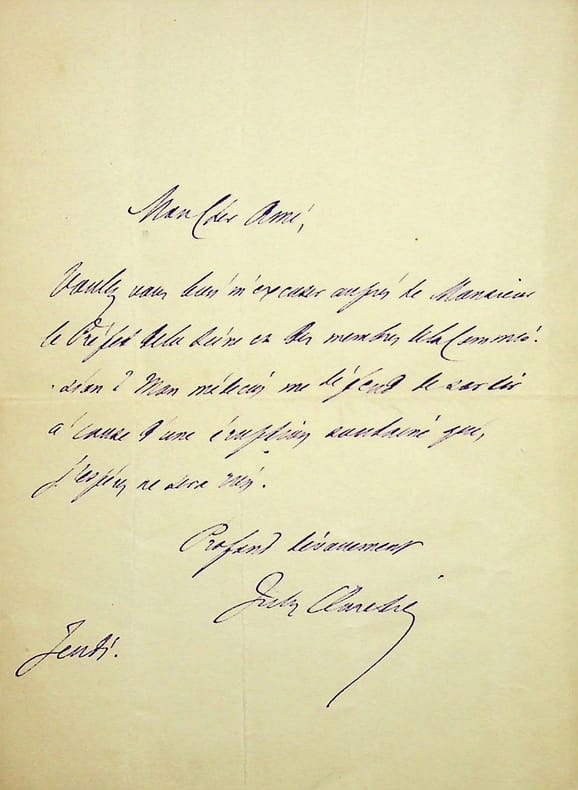 Mon Cher Ami,
Voulez vous bien m'excuser auprès de Monsieur
le Préfet de la Seine et des membres de la Commis-
-sion ? Mon médecin me défend de sortir
à cause d'une éruption soudaine qui,
j'espère, ne sera rien.
Profond dévouement
Jules Claretie
Jeudi.